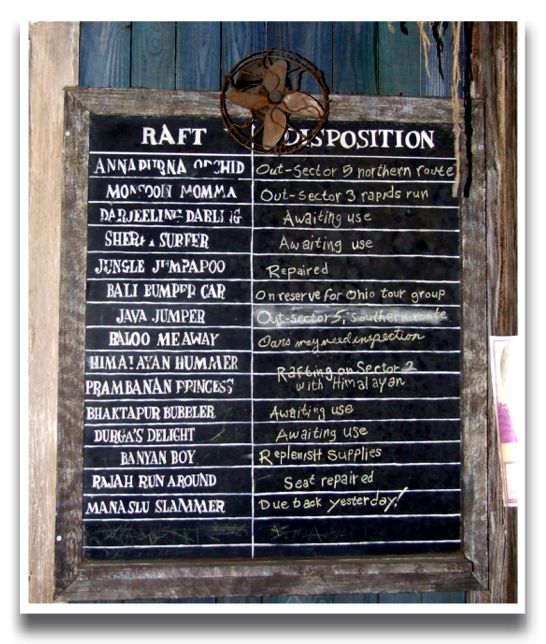 RAFT DISPOSITION
ANNAPURNA ORCHID Out-Sector 5 northern route
MONSOON MOMMA Out-Sector 3 rapids run
DARJEELING DARLING Awaiting use
SHERPA SURFER Awaiting use
JUNGLE JUMPAPOO Repaired
BALI BUMPER CAR On reserve for Ohio tour group
JAVA JUMPER Out-sector 5, southern route
BALOO ME AWAY Oars may need inspection
HIMALAYAN HUMMER Rafting on Sector 2
PRAMBANAN PRINCESS with Himalayan
BHAKTAPUR BUBBLER Awaiting use
DURGA'S DELIGHT Awaiting use
BANYAN BOY Replenish Supplies
RAJAH RUN AROUND Seat repaired
MANASLU SLAMMER Due back yesterday!